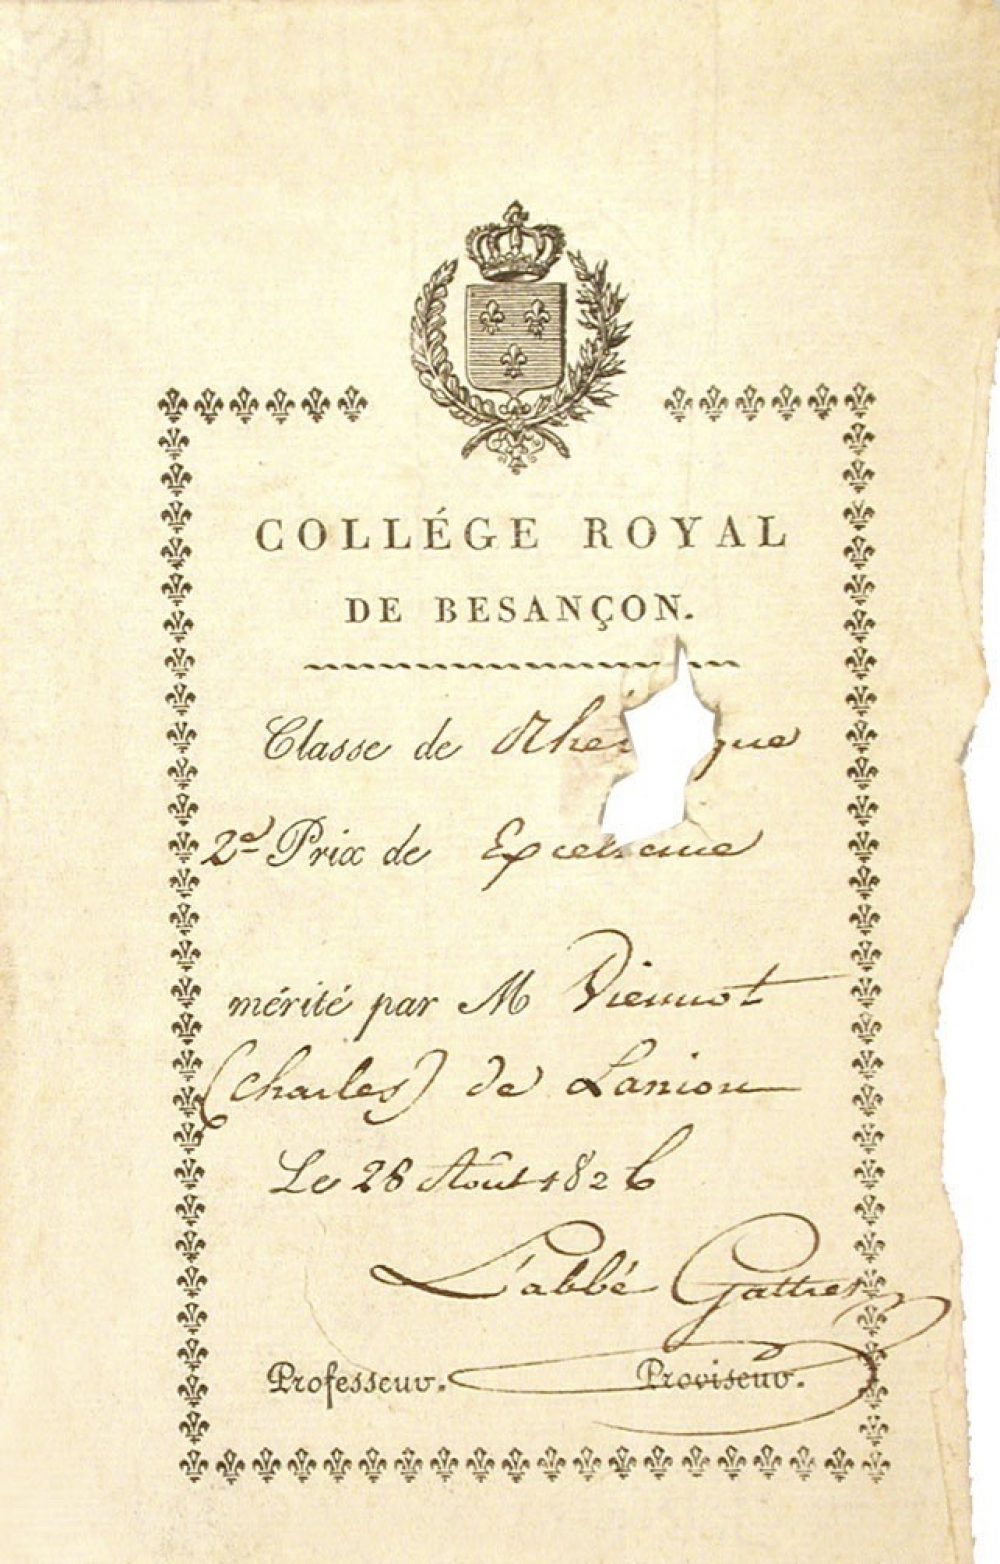 COLLÉGE ROYAL
DE BESANÇON.
Classe de Rhé que
2d Prix de Excellence
mérité par M Viennot
(Charles) de Lanion
Le 28 Août 1826
L'abbé Gattrez
Professeur. Proviseur.